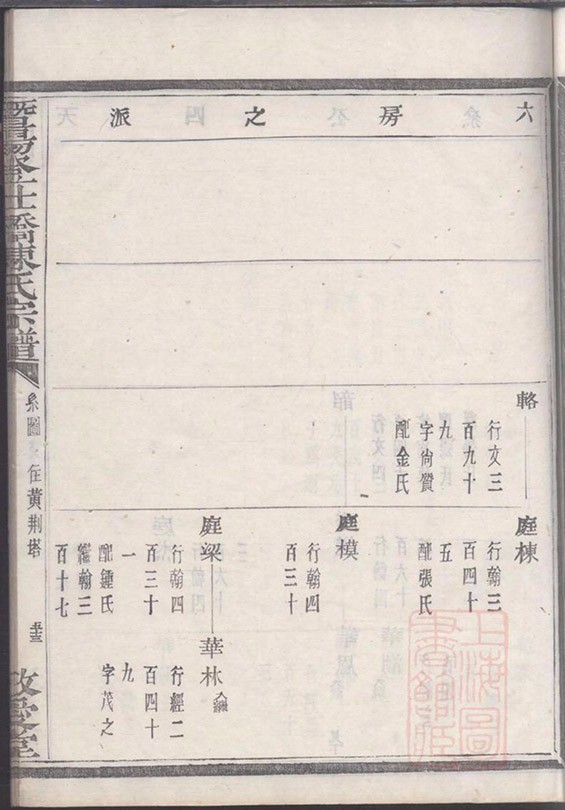 六房之派
輅
行文三
百九十
九
字尚贤
配金氏
庭棟
行翰三
百四十
五
配張氏
庭模
行翰四
百三十
庭梁
行翰四
百三十
一
配鍾氏
繼翰三
百十七
華林
行經二
百四十
九
字茂之
暨陽
橋陳氏宗譜
系圖
住黃荆塔
敬愛堂
上海圖書館藏